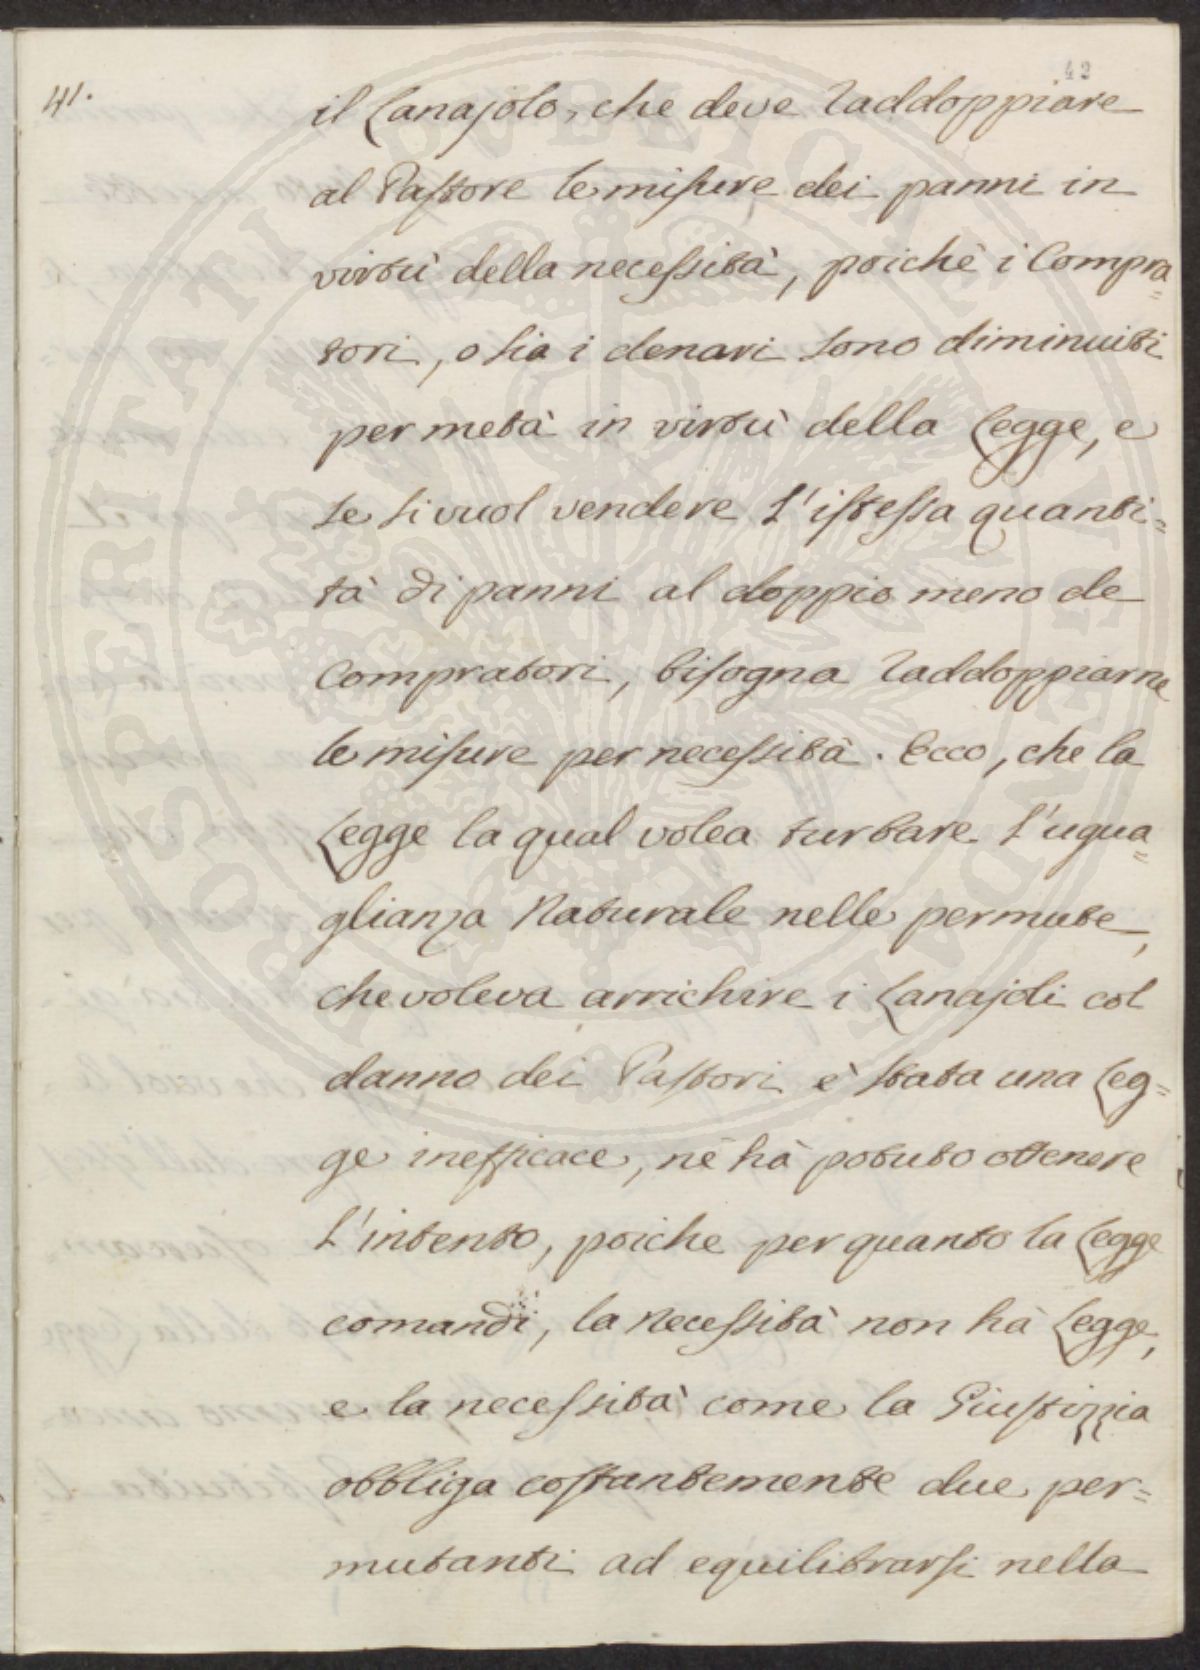 42
41.
il Lanajolo, che deve raddoppiare
al Pastore le misure dei panni in
virtù della necessità, poichè i Compra=
tori, o sia i denari sono diminuiti
per metà in virtù della Legge, e
se si vuol vendere l'istessa quanti=
tà di panni al doppio meno de
Compratori, bisogna raddoppiarne
le misure per necessità. Ecco, che la
Legge la qual volea turbare l'ugua=
glianza Naturale nelle permute,
che voleva arrichire i Lanajoli col
danno dei Pastori è stata una Leg=
ge inefficace, nè hà potuto ottenere
l'intento, poiche per quanto la Legge
comandi, la Necessità non hà Legge,
e la necessità come la Giustizzia
obbliga costantemente due per=
mutanti ad equilibrarsi nella
PROSPERITATI PVBLICAE AVGENDAE